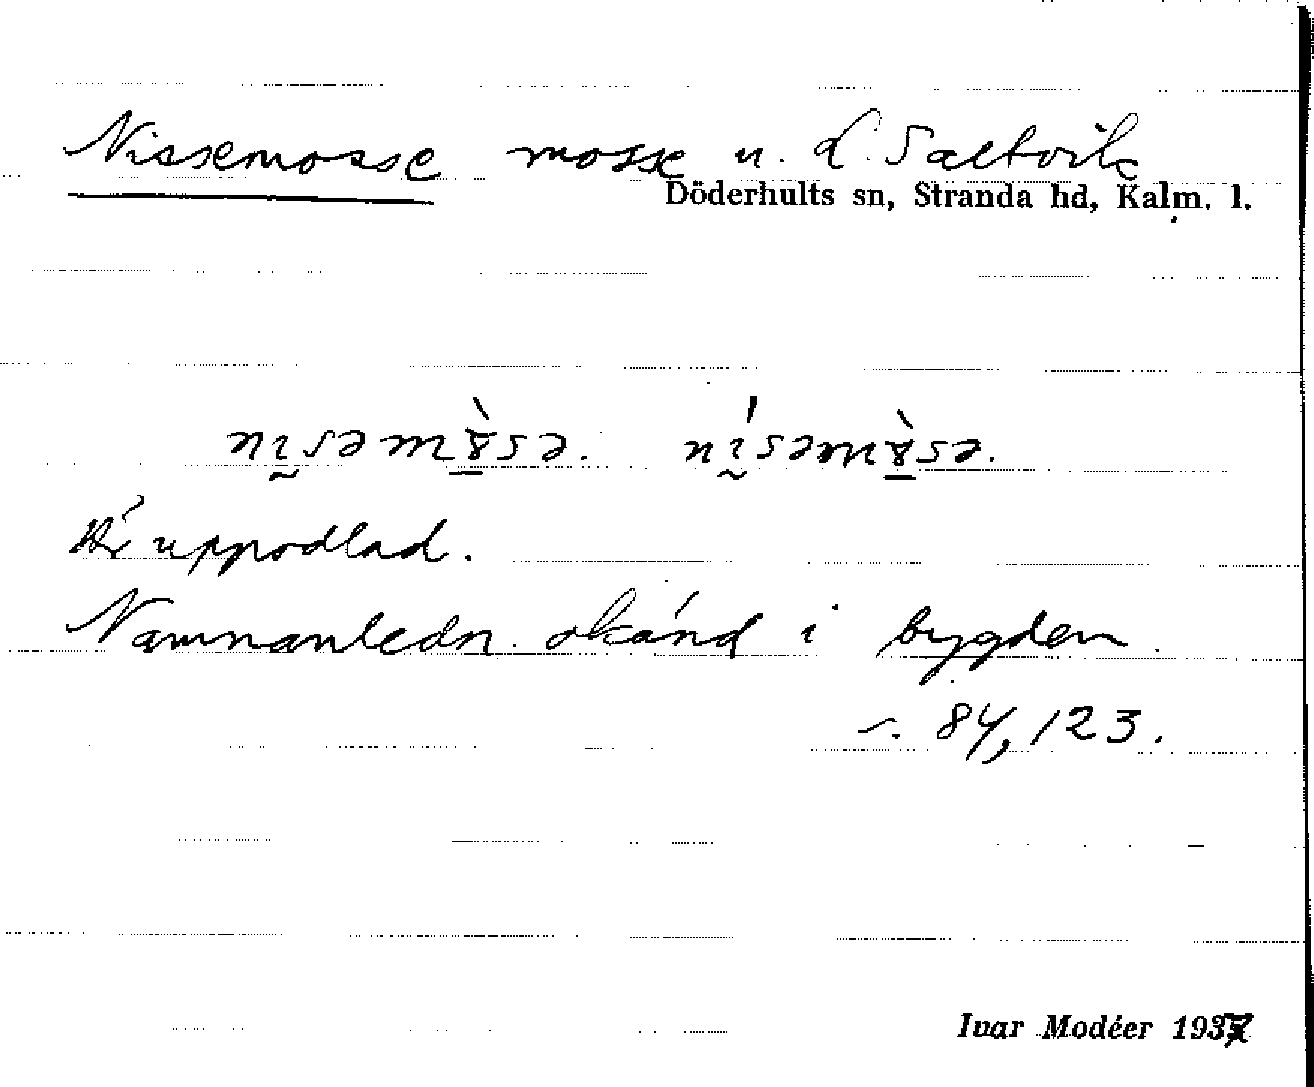 Nissemosse mosse u. L. Saltvik
Döderhults sn, Stranda hd, Kalm. l.
Är uppodlad.
Namnanledn. okänd i bygden.
s. 84, 123.
Ivar Modéer 1937